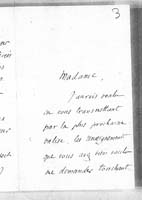 3
Madame,
J'aurais voulu
en vous transmettant
par la plus prochaine
valise, les renseignements
que vous avez bien voulu
me demander touchant